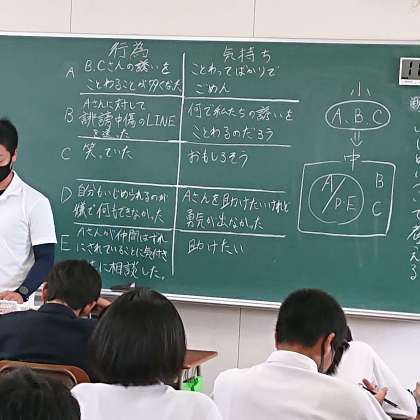 行為
気持ち
A
B.Cさんの誘いを
ことわることが多くなった
ことわってばかりで
ごめん
B
Aさんに対して
誹謗中傷のLINE
を送った
何で私たちの誘いを
ことわるのだろう
C
笑っていた
おもしろそう
D
自分もいじめられるのが
嫌で何もできなかった
Aさんを助けたいけれど
勇気が出なかった
E
Aさんが仲間はずれ
にされていることに気付き
に相談した。
助けたい
小
A.B.C
中
A/D.E
B
C
考える